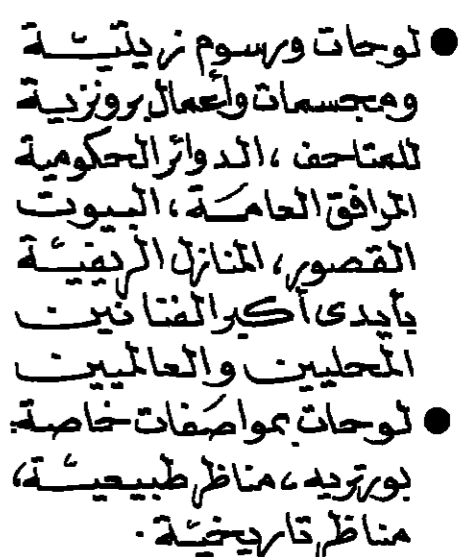 ● لوحات ورسوم زيتيــة
ومجسمات وأعمال برونزية
للمتاحف ، الدوائر الحكومية
المرافق العامــة ، البيوت
القصور ، المنازل الريفيــة
بأيدى أكبر الفنانين
المحليين والعالميين
● لوحات بمواصفات خاصة
بورتريه ، مناظر طبيعيــة ،
مناظر تاريخيــة .